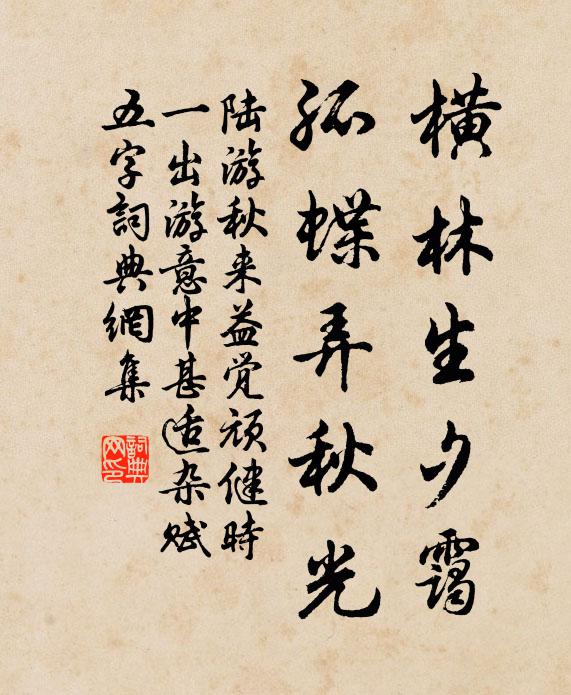 横林生夕靄
孤蝶弄秋光
陆游秋来益觉顽健時
一出游意中甚适杂赋
五字詞典網集
詞典网印